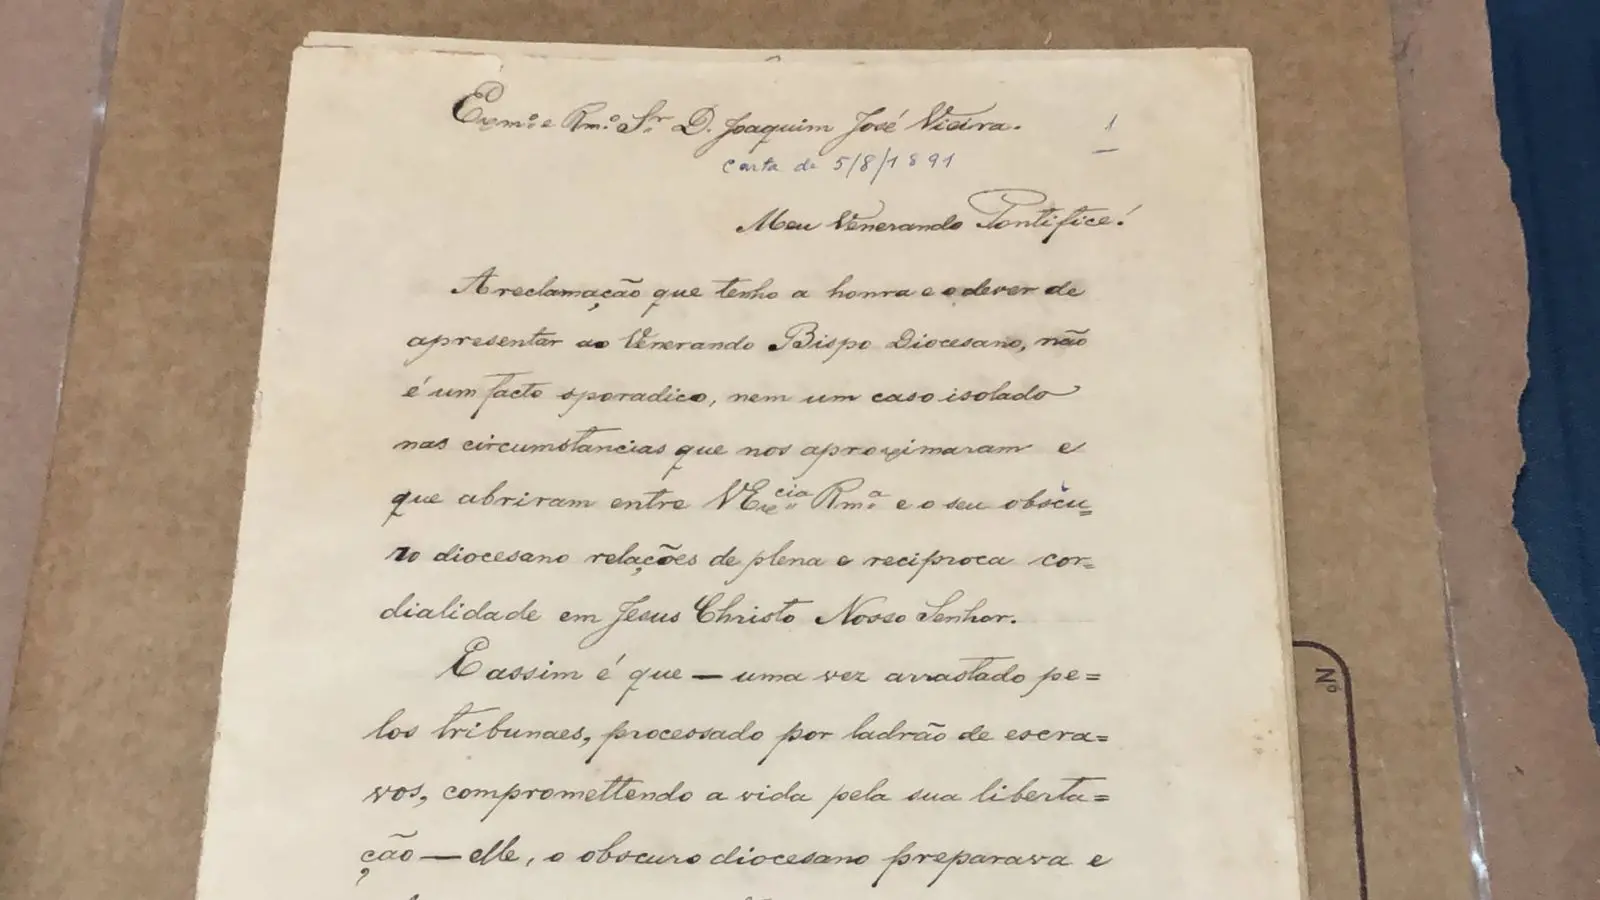 Exmo. e Rmo. Sr. D. Joaquim José Vieira.
1
carta de 5/8/1891
Meu Venerando Pontifice!
A reclamação que tenho a honra e o dever de
apresentar ao Venerando Bispo Diocesano, não
é um facto sporadico, nem um caso isolado
nas circumstancias que nos aproximaram e
que abriram entre V Excia. Rma. e o seu obscu=
ro diocesano relações de plena e reciproca cor=
dialidade em Jesus Christo Nosso Senhor.
E assim é que — uma vez arrastado pe=
los tribunaes, processado por ladrão de escra=
vos, compromettendo a vida pela sua liberta=
ção — elle, o obscuro diocesano preparava e
No